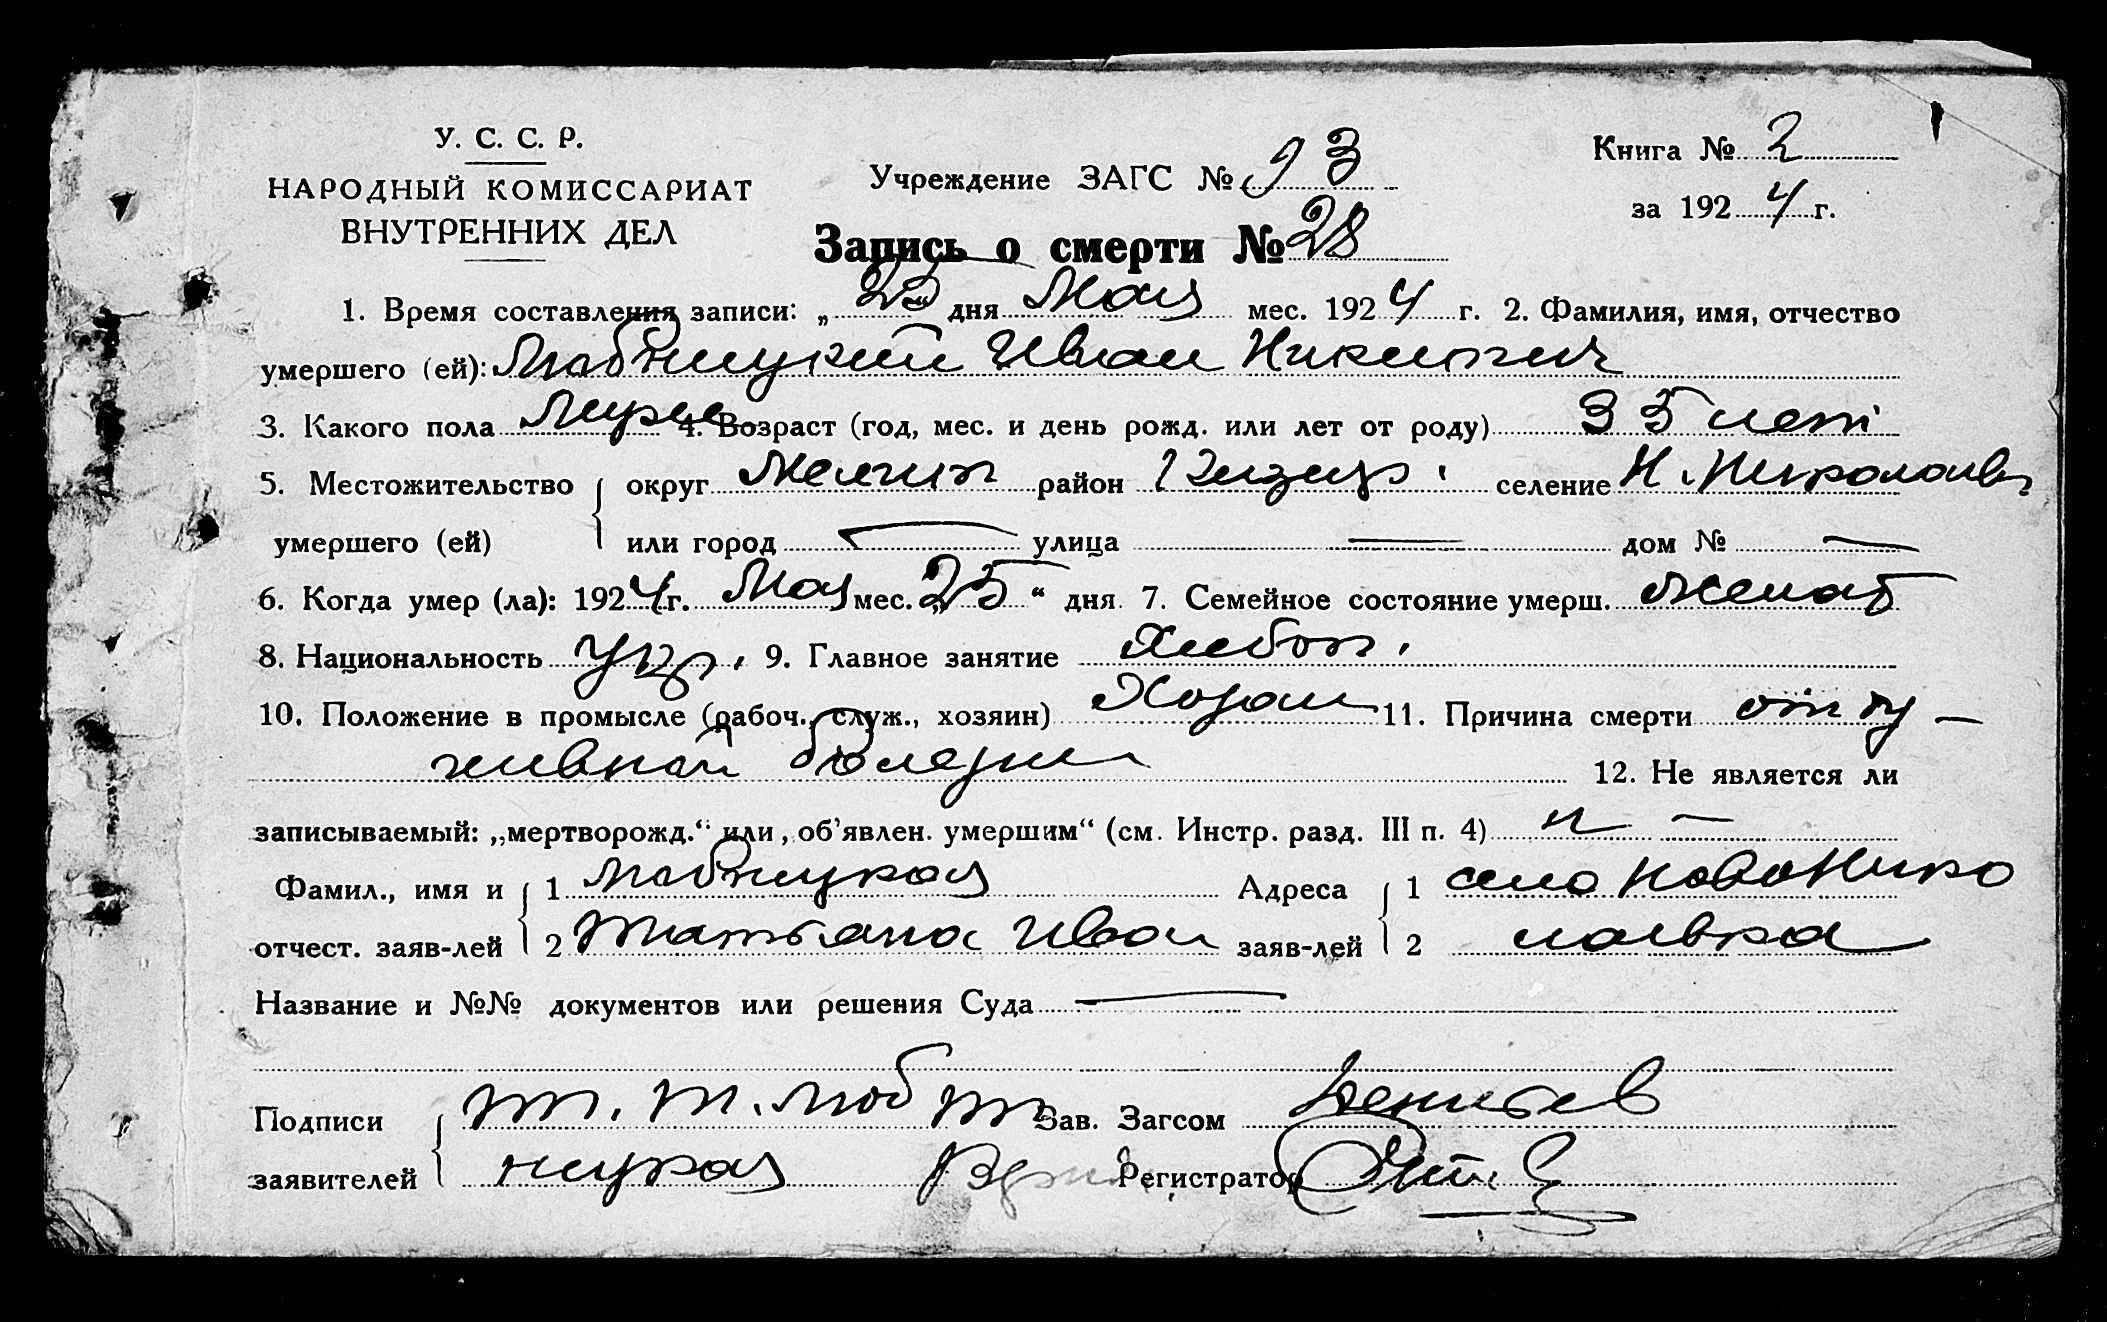 У. С. С. Р.
НАРОДНЫЙ КОМИССАРИАТ
ВНУТРЕННИХ ДЕЛ
Учреждение ЗАГС № 93
Книга № 2
за 1924 г.
Запись о смерти № 28
1. Время составления записи: „25 дня Мая мес. 1924 г. 2. Фамилия, имя, отчество
умершего (ей): Иван Никитич
3. Какого пола Муже 4. Возраст (год, мес. и день рожд. или лет от роду) 35 лет
5. Местожительство округ Мелит район селение Н. Николаев
умершего (ей) или город — улица — дом № —
6. Когда умер (ла): 1924 г. Мая мес. „25“ дня. 7. Семейное состояние умерш. женат
8. Национальность укр. 9. Главное занятие Хлебоп.
10. Положение в промысле (рабоч., служ., хозяин) Хозяин 11. Причина смерти от
болезни 12. Не является ли
записываемый: „мертворожд.“ или „об’явлен. умершим“ (см. Инстр. разд. III п. 4) н —
Фамил., имя и 1 Адреса 1 село НовоНико
отчест. заяв-лей 2 Татьяна Иван заяв-лей 2 лаевка
Название и №№ документов или решения Суда —
Подписи Зав. Загсом
заявителей Регистратор